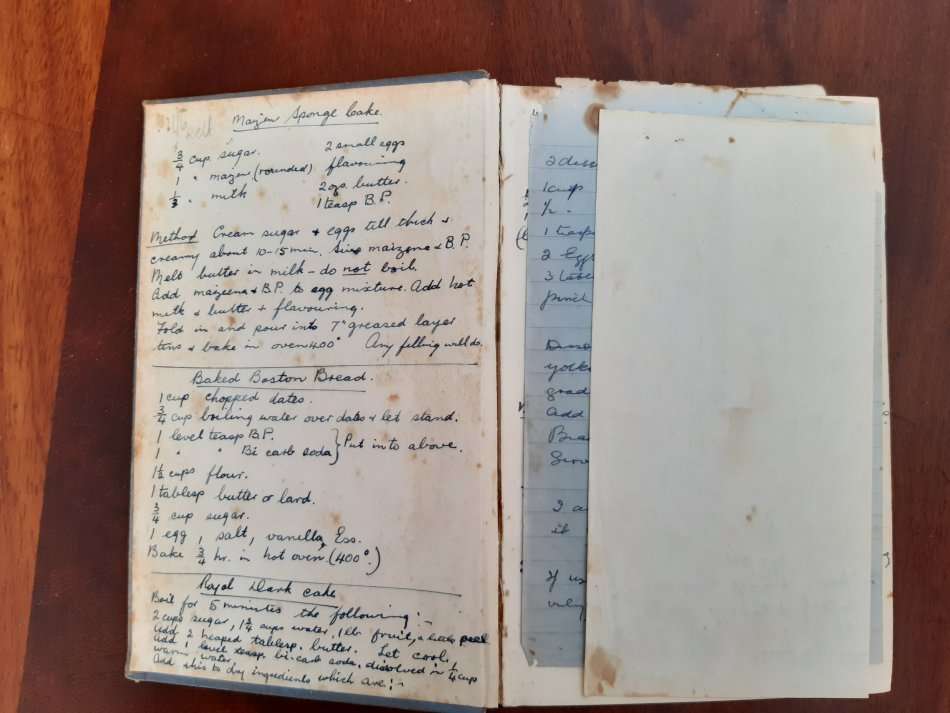 Maizen Sponge Cake.
3/4 cup sugar. 2 small eggs
1 " mazen (rounded) flavouring
1/3 " milk 2 ozs. butter.
1 teasp B.P.
Method Cream sugar + eggs till thick +
creamy about 10-15 min. maizena + B.P.
Melt butter in milk – do not boil.
Add maizena + B.P. to egg mixture. Add hot
milk + butter + flavouring.
Fold in and pour into 7" greased layer
tins + bake in oven 400° Any filling will do.
Baked Boston Bread.
1 cup chopped dates.
3/4 cup boiling water over dates + let stand.
1 level teasp B.P.
1 " " Bi carb soda } Put in to above.
1 1/2 cups flour.
1 tablesp butter or lard.
3/4 cup sugar.
1 egg, salt, vanilla Ess.
Bake 3/4 hr. in hot oven. (400°.)
Royal Dark cake
Boil for 5 minutes the following :-
2 cups sugar, 1 3/4 cups water, 1 lb. fruit, peel
Add 2 heaped tablesp. butter. Let cool.
Add 1 level teasp. bi-carb soda, dissolved in 1/4 cup
warm water.
Add this to dry ingredients which are :-
1 cup
1/2
1 teasp
2 Eggs
3 table
pinch
yolks
Add
it
If us